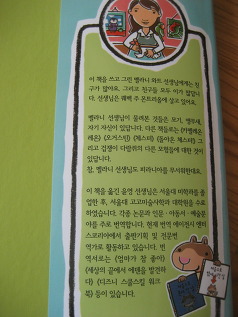 이 책을 쓰고 그린 멜라니 와트 선생님에게는 친
구가 많아요. 그리고 친구들 모두 이가 많답니
다. 선생님은 퀘벡 주 몬트리올에 살고 있어요.
멜라니 선생님이 물려준 것들은 토끼, 앵무새,
자기 자신이 있답니다. 다른 책들로는 《카멜레온
레온》 《오거스틴》 《체스터》 《돌아온 체스터》 그
리고 겁쟁이 다람쥐의 다른 모험들에 대한 것이
있답니다.
참, 멜라니 선생님도 피라니아를 무서워한대요.
이 책을 옮긴 윤영 선생님은 서울대 미학과를 졸
업한 후, 서울대 고고미술사학과 대학원을 수료
하였습니다. 각종 논문과 인문·아동서·예술분
야를 주로 번역합니다. 현재 번역 에이전시 엔터
스코리아에서 출판기획 및 전문번
역가로 활동하고 있습니다. 번
역서로는 《엄마가 참 좋아》
《세상의 끝에서 에덴을 발견하
다》 《디즈니 스쿨스킬 워크
북》 등이 있습니다.